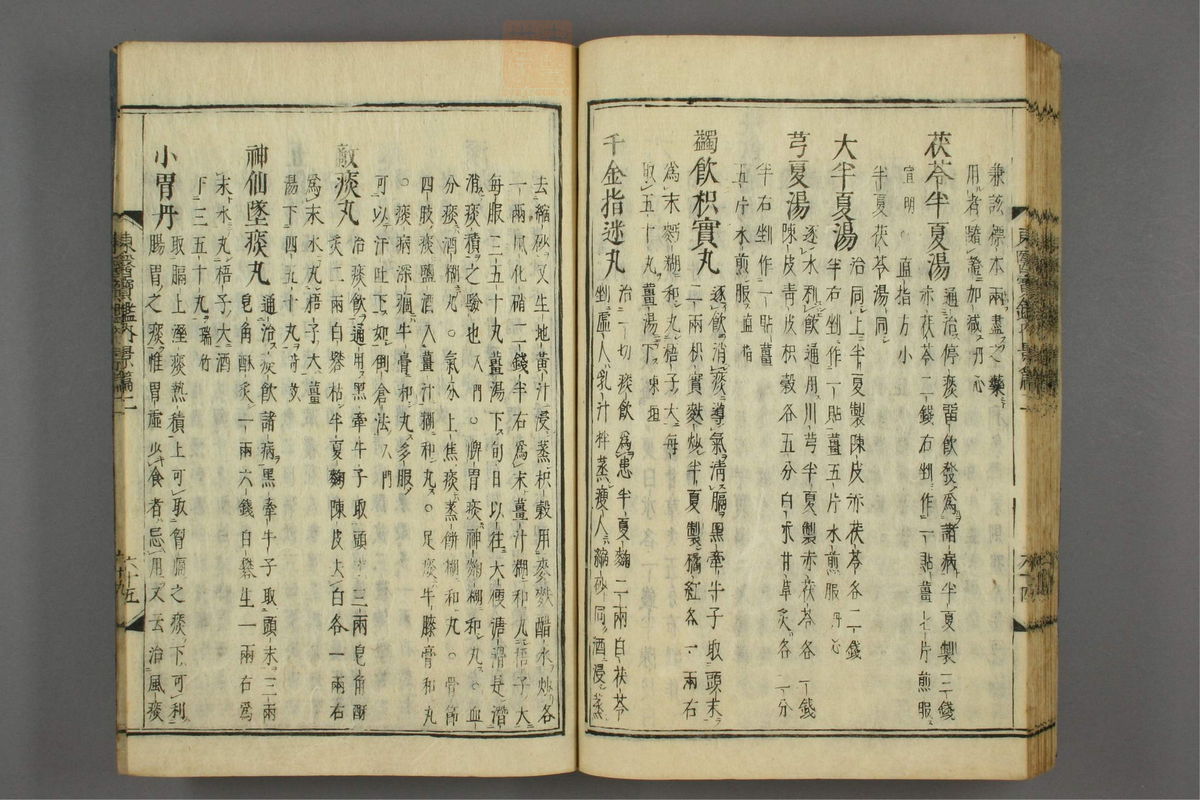 兼該標本兩盡之藥
用者隨證加減 丹心
茯苓半夏湯
通治停痰留飮發爲諸病半夏製三錢
赤茯苓二錢右剉作一貼薑七片煎服
宣明○直指方小
半夏茯苓湯同
大半夏湯
治同上半夏製陳皮赤茯苓各二錢
半右剉作一貼薑五片水煎服 丹心
芎夏湯
逐水利飮通用川芎半夏製赤茯苓各一錢
陳皮靑皮枳殼各五分白朮甘草灸各二分
半右剉作一貼薑
五片水煎服 直指
蠲飮枳實丸
逐飮消痰導氣淸膈黑牽牛子取頭末
二兩枳實麩炒半夏製橘紅各一兩右
爲末麪糊和丸梧子大每
取五十丸薑湯下 東垣
千金指迷丸
治一切痰飮爲患半夏麴二兩白茯苓
乳汁拌蒸瘦人縮砂同酒浸蒸
東醫寶鑑內景篇二
去縮砂又生地黃汁浸蒸枳殼用麥麩醋水炒各
一兩風化硝二錢半右爲末薑汁糊和丸梧子大
每服三五十丸薑湯下旬日以往大便滑是潛
消痰積之驗也 入門○脾胃痰神麴糊和丸○血
分痰酒糊丸○氣分上焦痰蒸餠糊和丸○骨節
四肢痰鹽酒入薑汁糊和丸○足痰牛膝膏和丸
○痰病深痼牛膏和丸多服
可以汗吐下如倒倉法 入門
敵痰丸
治痰飮通用黑牽牛子取頭末三兩皂角酥
灸二兩白礬枯半夏麴陳皮去白各一兩右
爲末水丸梧子大薑
湯下四五十丸
神仙墜痰丸
通治痰飮諸病黑牽牛子取頭末三兩
皂角酥灸一兩六錢白礬生一兩右爲
末水丸梧子大酒
下三五十丸 瑞竹
小胃丹
取膈上濕痰熱積上可取胷膈之痰下可利
腸胃之痰惟胃虛少食者忌用又云治風痰
東醫寶鑑內景篇二
六十五